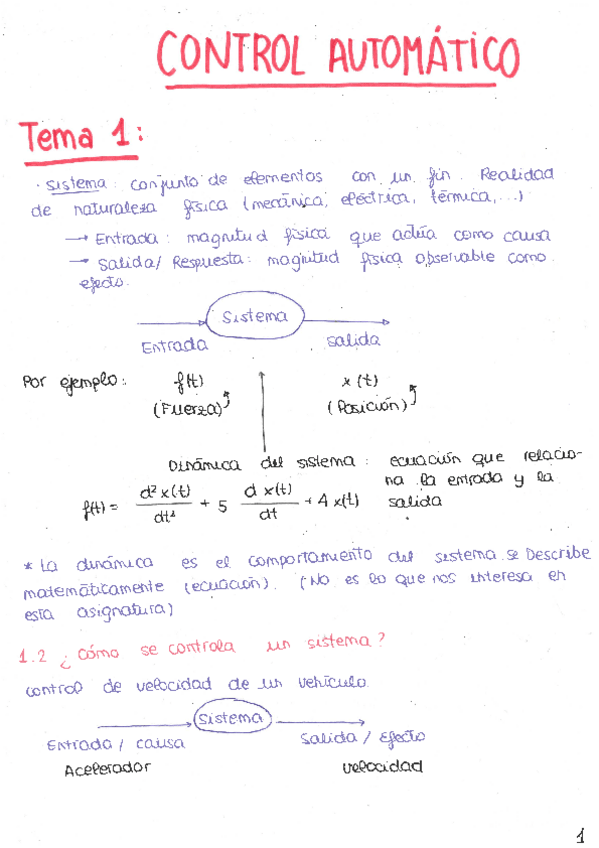 CONTROL AUTOMÁTICO
Tema 1:
· Sistema: conjunto de elementos con un fin. Realidad
de naturaleza física (mecánica, eléctrica, térmica, ...)
→ Entrada: magnitud física que actúa como causa
→ Salida/Respuesta: magnitud física observable como
efecto.
Sistema
Entrada Salida
Por ejemplo: f(t) x(t)
(Fuerza) (Posición)
Dinámica del sistema: ecuación que relacio-
na la entrada y la
salida
f(t) = d²x(t)/dt² + 5 dx(t)/dt + 4x(t)
* La dinámica es el comportamiento del sistema. Se Describe
matemáticamente (ecuación). (No es lo que nos interesa en
esta asignatura)
1.2 ¿Cómo se controla un sistema?
Control de velocidad de un vehículo.
Sistema
Entrada / causa Salida / Efecto
Acelerador Velocidad
1